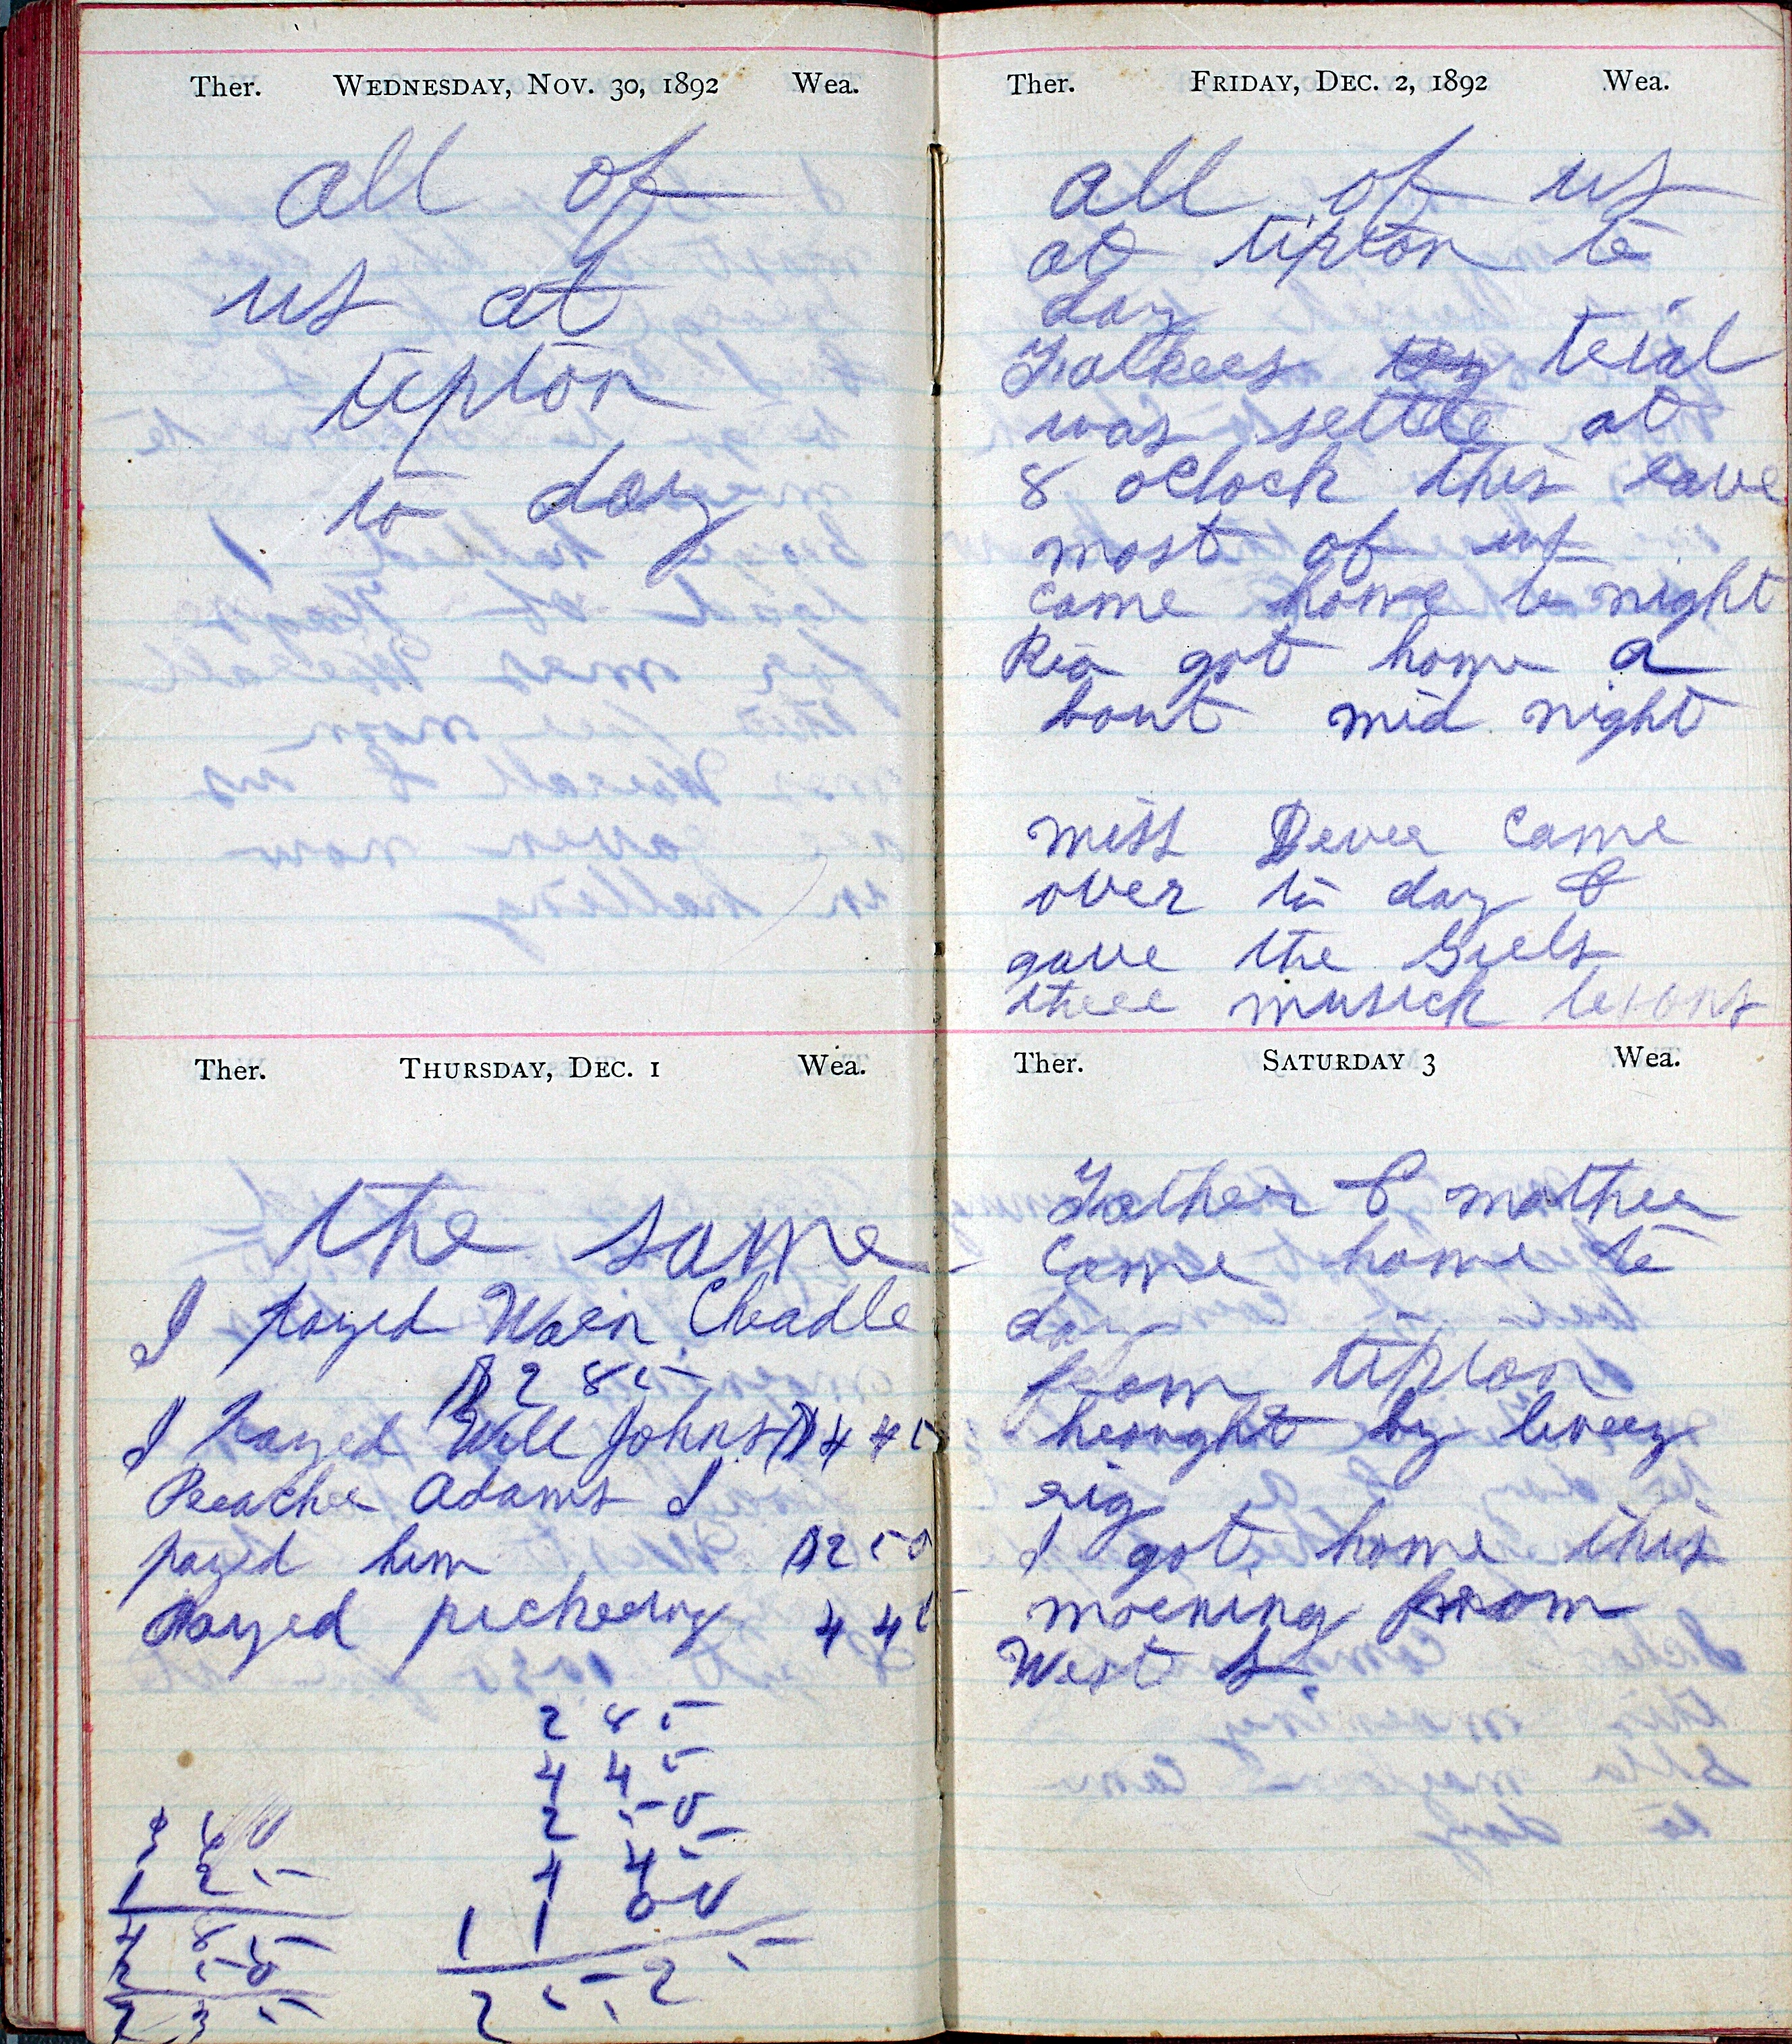 Ther. WEDNESDAY, NOV. 30, 1892 Wea.
all of
us at
tipton
to day
Ther. THURSDAY, DEC. 1 Wea.
the same
I payed Warn Cheadle
$2 85
I payed Will Johns $4 45
Preacher Adams I
payed him $2 50
payed pickering 4 45
2 85
4 45
2 50
4 45
11 00
25,25
3 60
1 25
4 85
2 50
7 35
Ther. FRIDAY, DEC. 2, 1892 Wea.
all of us
at tipton to
day
trial
was settle at
8 oclock this eave
most of us
came home to night
Rea got home a
bout mid night
miss Dever came
over to day &
gave the Girls
there musick lesons
Ther. SATURDAY 3 Wea.
Father & mother
came home to
day
from tipton
brought by livery
rig
I got home this
morning from
West L.